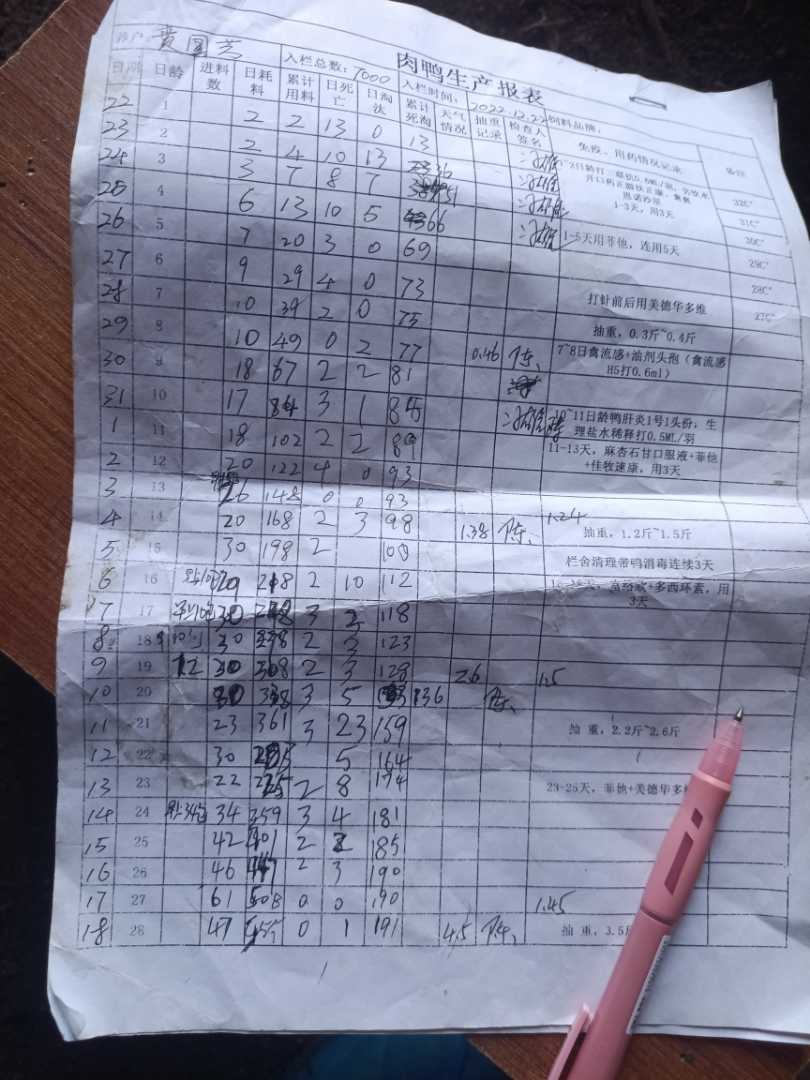 肉鸭生产报表
养户： 黄国芸 入栏总数：7000 入栏时间：2022.12.22 饲料品牌：
日期 日龄 进料数 日耗料 累计用料 日死亡 日淘汰 累计死淘 天气情况 抽重记录 检查人签名 免疫、用药情况记录 备注
22 1 2 2 13 0 13
23 2 2 4 10 13 36 32C°
24 3 3 7 8 7 51 1-3天，用3天 31C°
25 4 6 13 10 5 66 30C°
26 5 7 20 3 0 69 1-5天用菲他，连用5天 29C°
27 6 9 29 4 0 73 28C°
28 7 10 39 2 0 75 打针前后用美德华多维 27C°
29 8 10 49 0 2 77 0.46 陈 抽重，0.3斤~0.4斤
30 9 18 67 2 2 81 7~8日禽流感+油剂头孢（禽流感H5打0.6ml）
31 10 17 84 3 1 85
1 11 18 102 2 2 89 10~11日龄鸭肝炎1号1头份；生理盐水稀释打0.5ML/羽
2 12 20 122 4 0 93 11-13天，麻杏石甘口服液+菲他+佳牧速康，用3天
3 13 26 148 0 0 93
4 14 20 168 2 3 98 1.38 陈 1.24 抽重，1.2斤~1.5斤
5 15 30 198 2 100 栏舍清理带鸭消毒连续3天
6 16 20 218 2 10 112 +多西环素，用3天
7 17 30 248 3 3 118
8 18 30 278 2 3 123
9 19 12 30 308 2 3 128 2.6 1.5
10 20 30 338 3 5 136 陈
11 21 23 361 3 23 159 抽 重，2.2斤~2.6斤
12 22 30 5 164
13 23 22 2 8 174 23-25天，菲他+美德华多
14 24 34 359 3 4 181
15 25 42 401 2 2 185
16 26 46 447 2 3 190
17 27 61 508 0 0 190 1.45
18 28 47 0 1 191 4.5 陈 抽 重，3.5